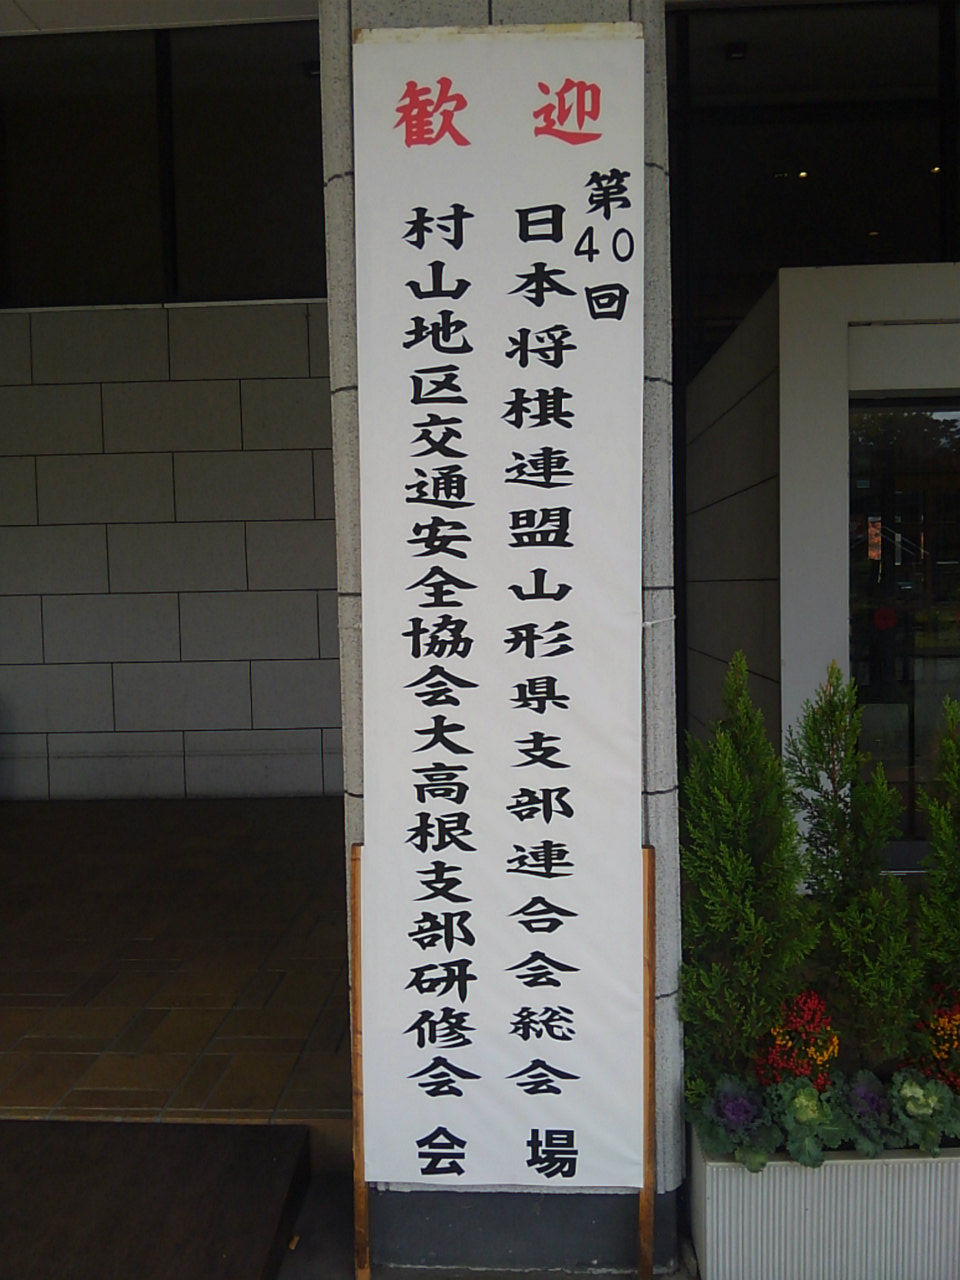 歓迎
第40回
日本将棋連盟山形県支部連合会総会
村山地区交通安全協会大高根支部研修会
会場